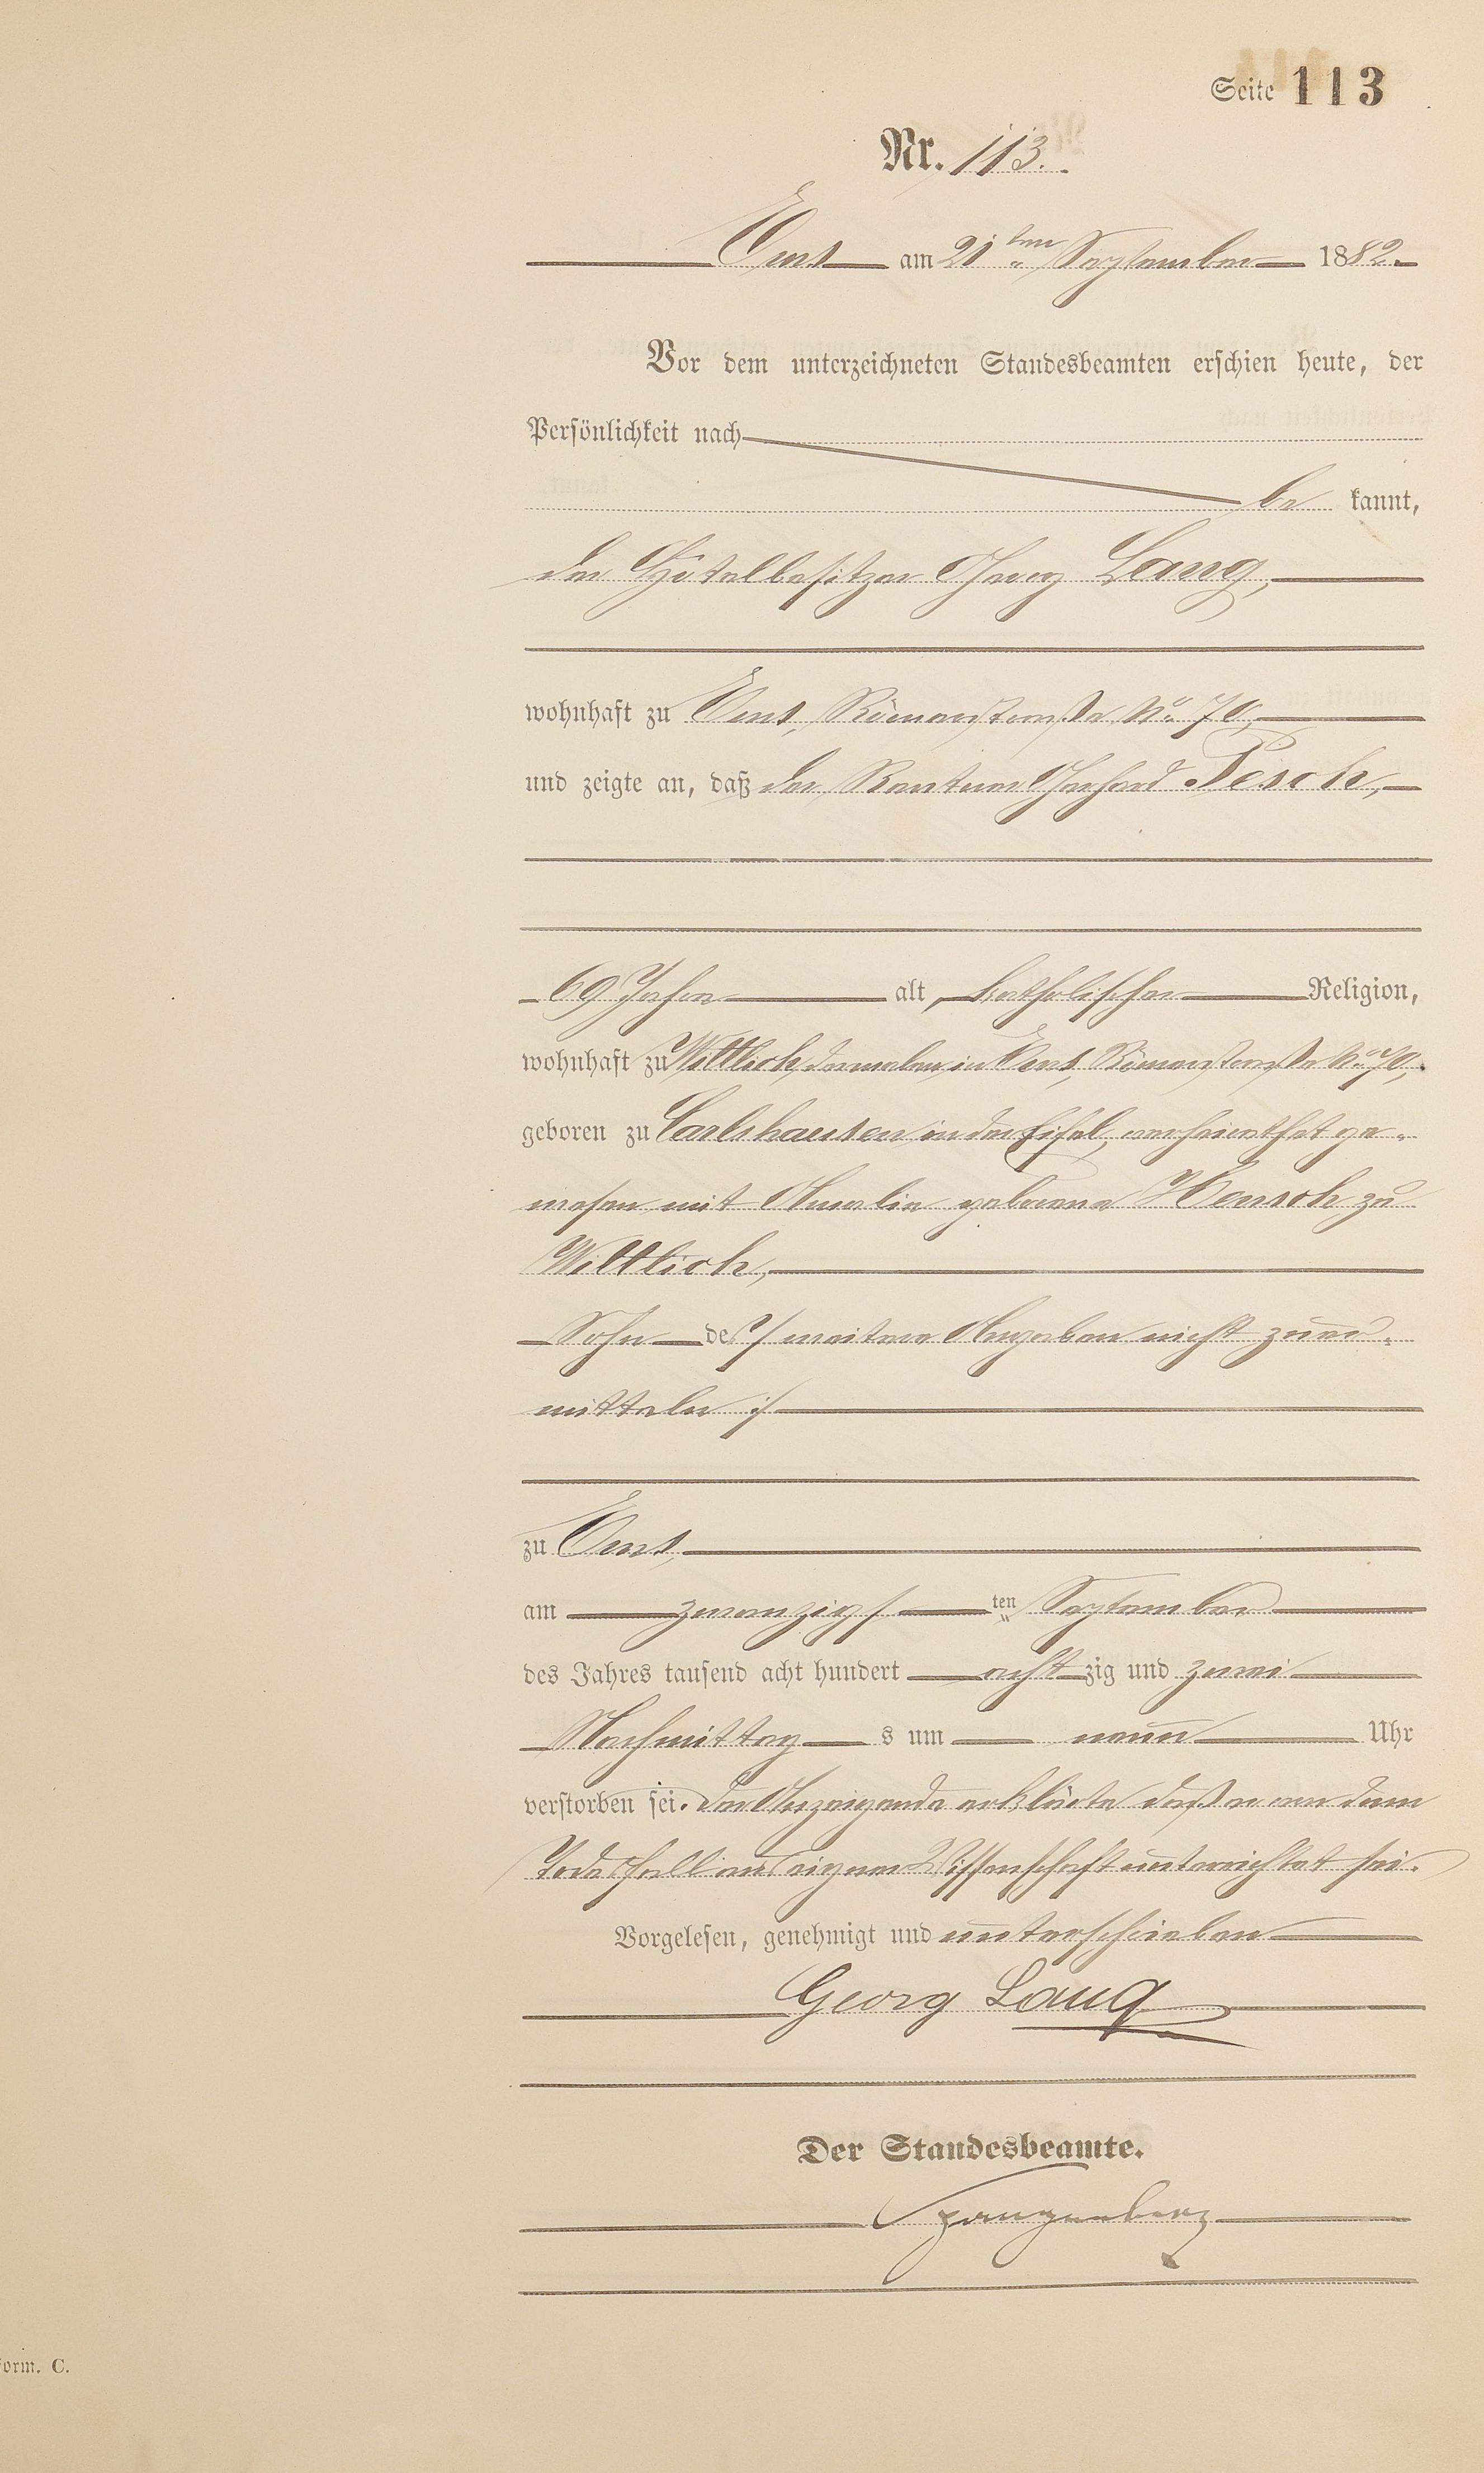 Seite 113
Nr. 113.
Ems am 21ten September 1882.
Vor dem unterzeichneten Standesbeamten erschien heute, der
Persönlichkeit nach
be kannt,
der Hôtelbesitzer Georg Lang,
wohnhaft zu Ems, Römerstraße No 70,
und zeigte an, daß der Rentner Gerhard Pesch,
69 Jahre alt, katholischer Religion,
wohnhaft zu Wittlich, dermalen in Ems, Römerstraße No 70,
geboren zu Carlshausen in der Eifel, verheirathet ge-
wesen mit Amalie geborene Hensch zu
Wittlich,
Sohn des / weitere Angaben nicht zu er-
mitteln :/
zu Ems,
am zwanzigsten September
des Jahres tausend acht hundert achtzig und zwei
Nachmittags um neun Uhr
verstorben sei. Der Anzeigende erklärte daß er von dem
Todesfall aus eigener Wissenschaft unterrichtet sei.
Vorgelesen, genehmigt und unterschrieben
Georg Lang
Der Standesbeamte.
Spangenberg
Form. C.